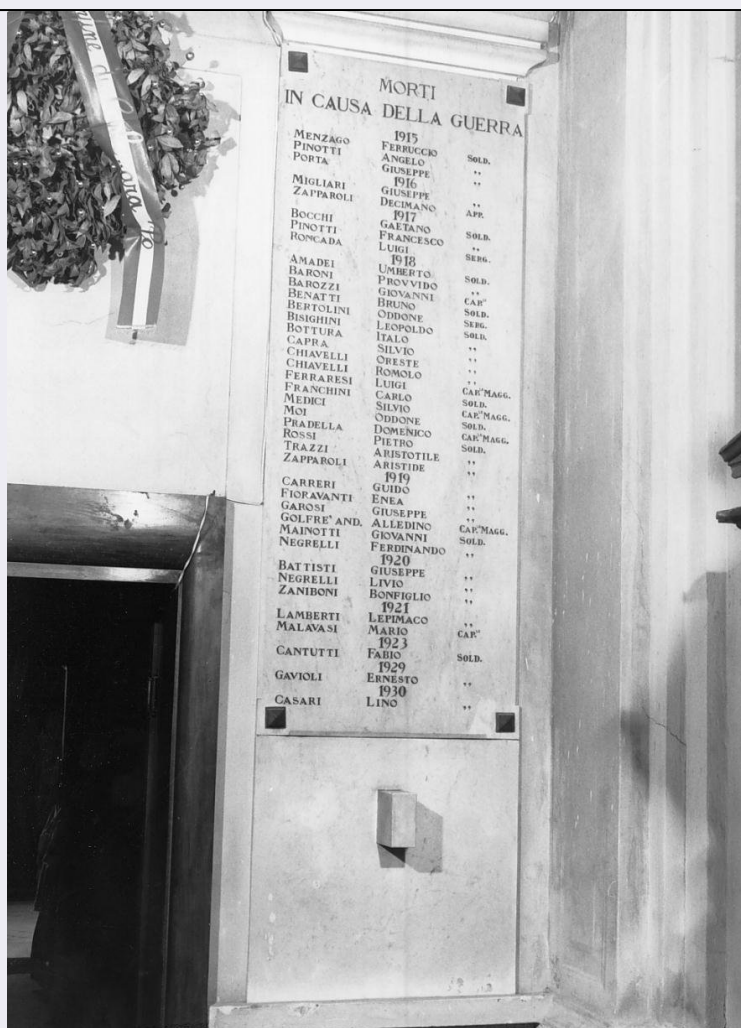 MORTI
IN CAUSA DELLA GUERRA
1915
MENZAGO FERRUCCIO SOLD.
PINOTTI ANGELO ,,
PORTA GIUSEPPE ,,
1916
MIGLIARI GIUSEPPE ,,
ZAPPAROLI DECIMANO APP.
1917
BOCCHI GAETANO SOLD.
PINOTTI FRANCESCO ,,
RONCADA LUIGI SERG.
1918
AMADEI UMBERTO SOLD.
BARONI PROVVIDO ,,
BAROZZI GIOVANNI CAP.
BENATTI BRUNO SOLD.
BERTOLINI ODDONE SERG.
BISIGHINI LEOPOLDO SOLD.
BOTTURA ITALO ,,
CAPRA SILVIO ,,
CHIAVELLI ORESTE ,,
CHIAVELLI ROMOLO ,,
FERRARESI LUIGI CAP. MAGG.
FRANCHINI CARLO SOLD.
MEDICI SILVIO CAP. MAGG.
MOI ODDONE SOLD.
PRADELLA DOMENICO CAP. MAGG.
ROSSI PIETRO SOLD.
TRAZZI ARISTOTILE ,,
ZAPPAROLI ARISTIDE ,,
1919
CARRERI GUIDO ,,
FIORAVANTI ENEA ,,
GAROSI GIUSEPPE ,,
GOLFRE' AND. ALLEDINO CAP. MAGG.
MAINOTTI GIOVANNI SOLD.
NEGRELLI FERDINANDO ,,
1920
BATTISTI GIUSEPPE ,,
NEGRELLI LIVIO ,,
ZANIBONI BONFIGLIO ,,
1921
LAMBERTI LEPIMACO ,,
MALAVASI MARIO CAP.
1923
CANTUTTI FABIO SOLD.
1929
GAVIOLI ERNESTO ,,
1930
CASARI LINO ,,